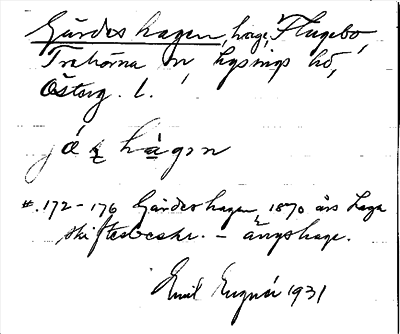 Gärdeshagen, hage, Flugebo,
Trehörna sn, Lysings hd,
Österg. l.
jáɛ hàgɪn
#.172-176 Gärdeshagen, 1870 års Laga
skiftesbeskr. - ängshage.
Emil 1931